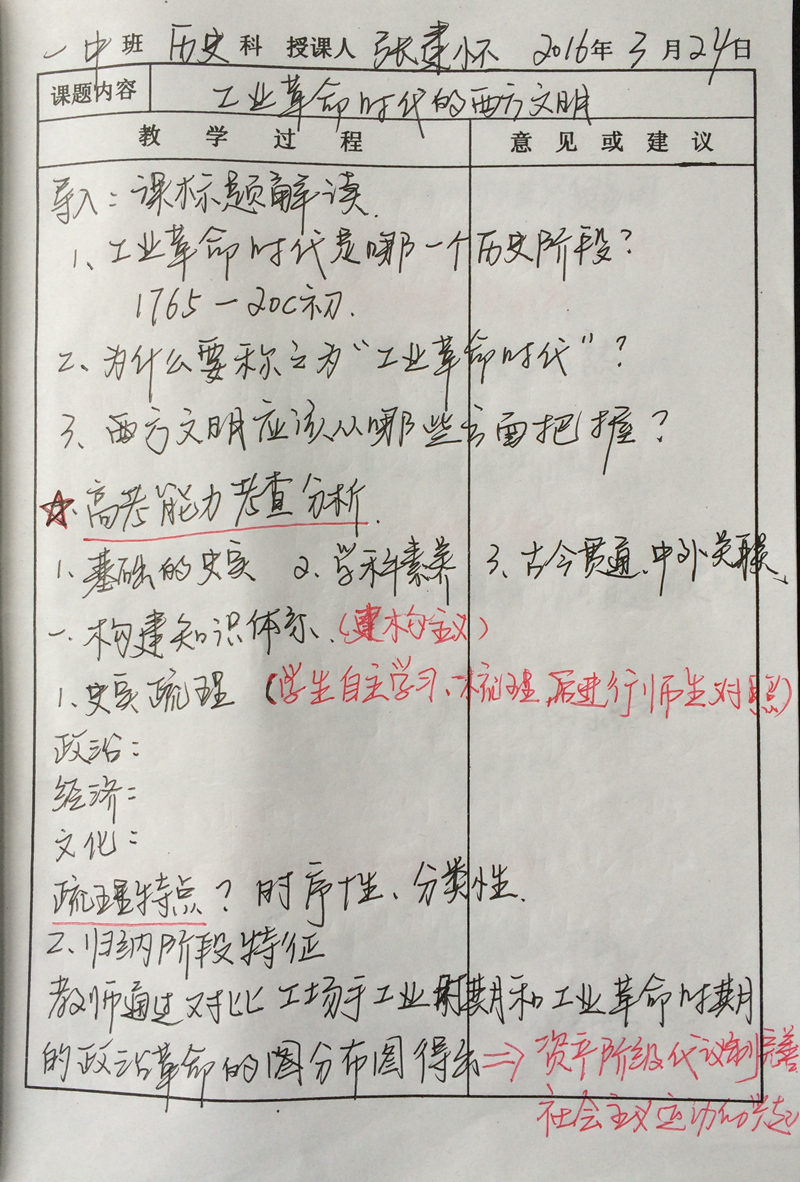 一中班 历史科 授课人 张建怀 2016年3月24日
课题内容 工业革命时代的西方文明
教学过程 意见或建议
导入:课标题解读.
1、工业革命时代是哪一个历史阶段?
1765—20C初.
2、为什么要称之为"工业革命时代"?
3、西方文明应该从哪些方面把握?
☆.高考能力考查分析.
1.基础的史实 2、学科素养 3、古今贯通、中外关联、
一.构建知识体系.(建构主义)
1.史实疏理 (学生自主学习、梳理,后进行师生对照)
政治:
经济:
文化:
疏理特点?时序性、分类性.
2.归纳阶段特征
教师通过对比工场手工业时期和工业革命时期
的政治革命的图分布图得出⇒资产阶级代议制完善
社会主义运动的兴起